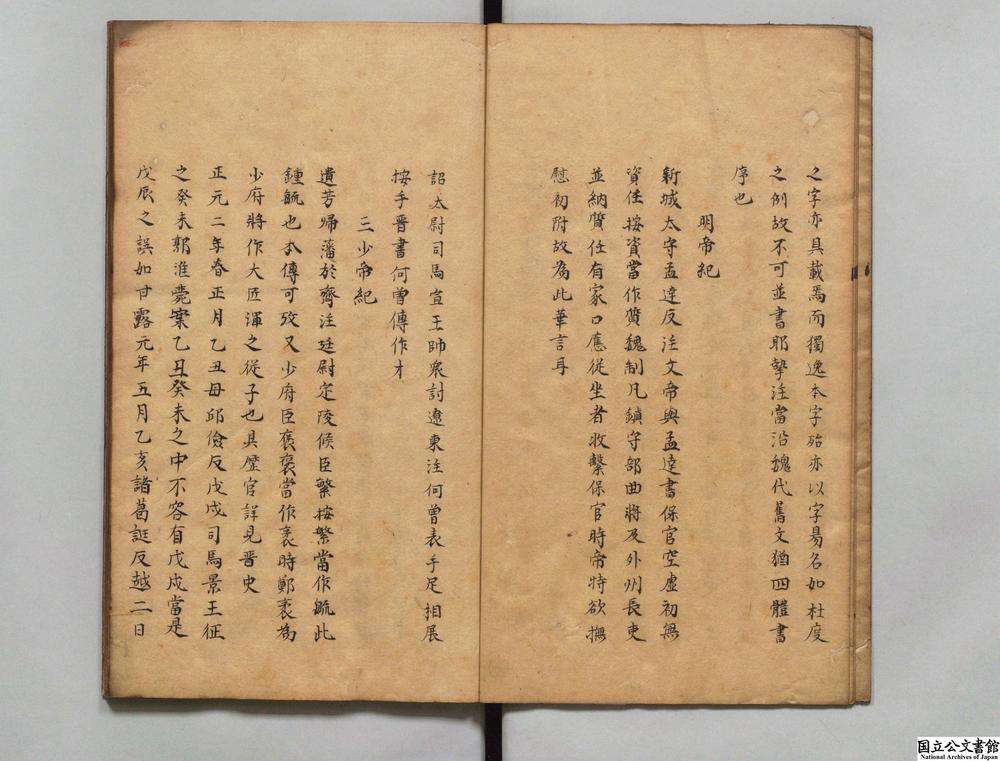 之字亦具載焉而獨逸本字殆亦以字易名如杜度
之例故不可並書耶摯注當沿魏代舊文猶四體書
序也
明帝紀
新城太守孟達反注文帝與孟達書保官空虛初無
資任按資當作質魏制凡鎮守部曲將及外州長吏
並納質任有家口應從坐者收繫保官時帝特欲撫
慰初附故為此華言耳
詔太尉司馬宣王帥衆討遼東注何曾表手足相展
按手晉書何曾傳作才
三少帝紀
遺芳歸藩於齊注廷尉定陵候臣繁按繁當作毓此
鍾毓也本傳可攷又少府臣褒褒當作袤時鄭袤為
少府將作大匠渾之從子也具歷官詳見晋史
正元二年春正月乙丑毋邱儉反戊戌司馬景王征
之癸未郭淮薨案乙丑癸未之中不容有戊戌當是
戊辰之誤如甘露元年五月乙亥諸葛誕反越二日
国立公文書館
National Archives of Japan